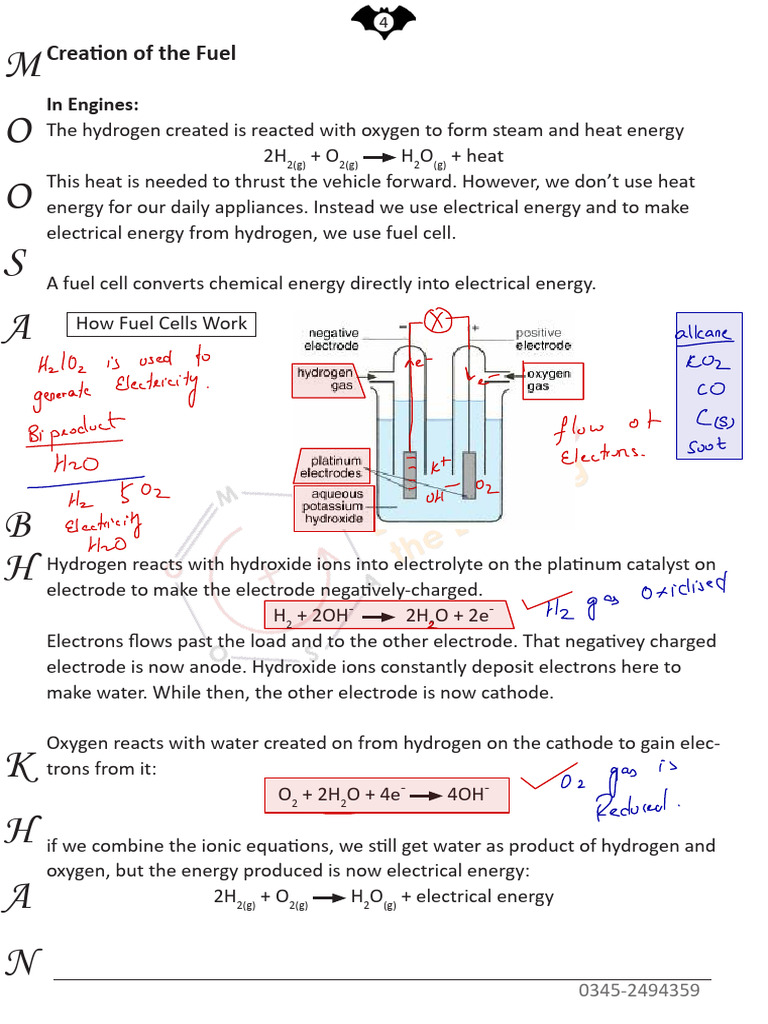 4
Creation of the Fuel
In Engines:
The hydrogen created is reacted with oxygen to form steam and heat energy
2H2(g) + O2(g) → H2O(g) + heat
This heat is needed to thrust the vehicle forward. However, we don't use heat
energy for our daily appliances. Instead we use electrical energy and to make
electrical energy from hydrogen, we use fuel cell.
A fuel cell converts chemical energy directly into electrical energy.
How Fuel Cells Work
H2/O2 is used to
generate Electricity.
Bi product
H2O
H2 O2
Electricity
H2O
negative
electrode
- +
positive
electrode
hydrogen
gas
e-
e-
oxygen
gas
platinum
electrodes
K+
OH-
O2
aqueous
potassium
hydroxide
flow of
Electrons.
alkane
CO
C(s)
Soot
Hydrogen reacts with hydroxide ions into electrolyte on the platinum catalyst on
electrode to make the electrode negatively-charged.
H2 + 2OH- → 2H2O + 2e-
H2 gas oxidised
Electrons flows past the load and to the other electrode. That negativey charged
electrode is now anode. Hydroxide ions constantly deposit electrons here to
make water. While then, the other electrode is now cathode.
Oxygen reacts with water created on from hydrogen on the cathode to gain elec-
trons from it:
O2 + 2H2O + 4e- → 4OH-
O2 gas is
Reduced.
if we combine the ionic equations, we still get water as product of hydrogen and
oxygen, but the energy produced is now electrical energy:
2H2(g) + O2(g) → H2O(g) + electrical energy
M
O
O
S
A
B
H
K
H
A
N
0345-2494359